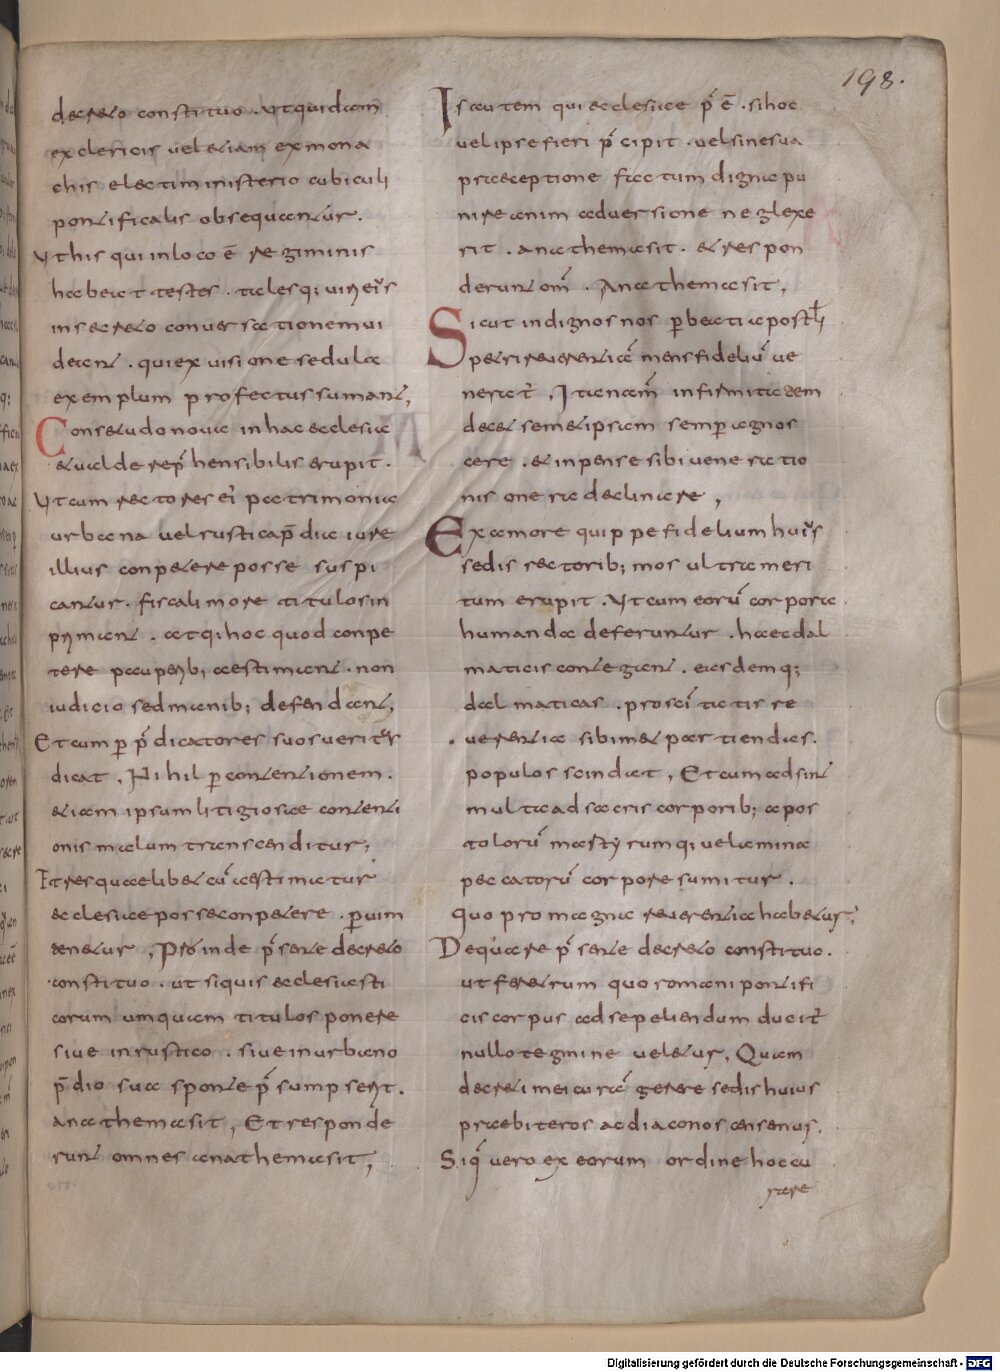 198.
decreto constituo. Ut quidam
ex clericis vel etiam ex mona
chis electi ministerio cubiculi
pontificalis obsequantur.
Ut his qui in loco ē regiminis
habeat testes. tales q; viri ei᾽s
in secreto conversationem vi
deant. qui ex visione sedula
exemplum profectus sumant,
Consuetudo nova in hac ecclesia
et valde rep̄hensibilis erupit.
Ut cum rectores ei᾽ patrimonia
urbana vel rustica p̄dia iure
illius conpetere posse suspi
cantur. fiscali more titulos in
primant. atq; hoc quod conpe
tere pauperib; aestimant. non
iudicio sed manib; defendant,
Et cum p̱ p̄dicatores suos veritas
dicat, Nihil p̱ contentionem.
etiam ipsum litigiosae contenti
onis malum transcenditur;
Et res quaelibet cū aestimatur
ecclesiae posse conpetere. p̱ vim
tenetur, Proinde p̄sente decreto
constituo. ut si quis ecclesiasti
corum umquam titulos ponere
sive in rustico. sive in urbano
p̄dio sua sponte p̄sumpserit.
anathema sit, Et responde
runt omnes anathema sit,
Is autem qui ecclesiae p̄ ē. si hoc
vel ipse fieri p̄cipit. vel sine sua
praeceptione factum digna pu
nire animadversione neglexe
rit. anathema sit. et respon
derunt om̄. Anathema sit,
Sicut indignos nos p̱ beati apostli
Petri reverentiā mens fideliū ve
nerat᾽, Ita nr̄am infirmitatem
decet semetipsam semp̱ agnos
cere. et inpense sibi veneratio
nis onera declinare,
Ex amore quippe fidelium hui᾽s
sedis rectorib; mos ultra meri
tum erupit. Ut cum eorū corpora
humanda deferuntur. haec dal
maticis contegant. easdemq;
dalmaticas. pro sc̄itatis re
verentia sibimet partiendas.
populos scindat, Et cum adsint
multa ad sacris corporib; apos
tolorū martyrumq; velamina
peccatorū corpore sumitur.
quo pro magna reverentia habetur,
De qua re p̄sente decreto constituo.
ut feretrum quo romani pontifi
cis corpus ad sepeliendum ducit᾽
nullo tegmine veletur, Quam
decreti mei curā gerere sedis huius
praebiteros ac diaconos censemus.
Si q̇ vero ex eorum ordine hoc cu
rare